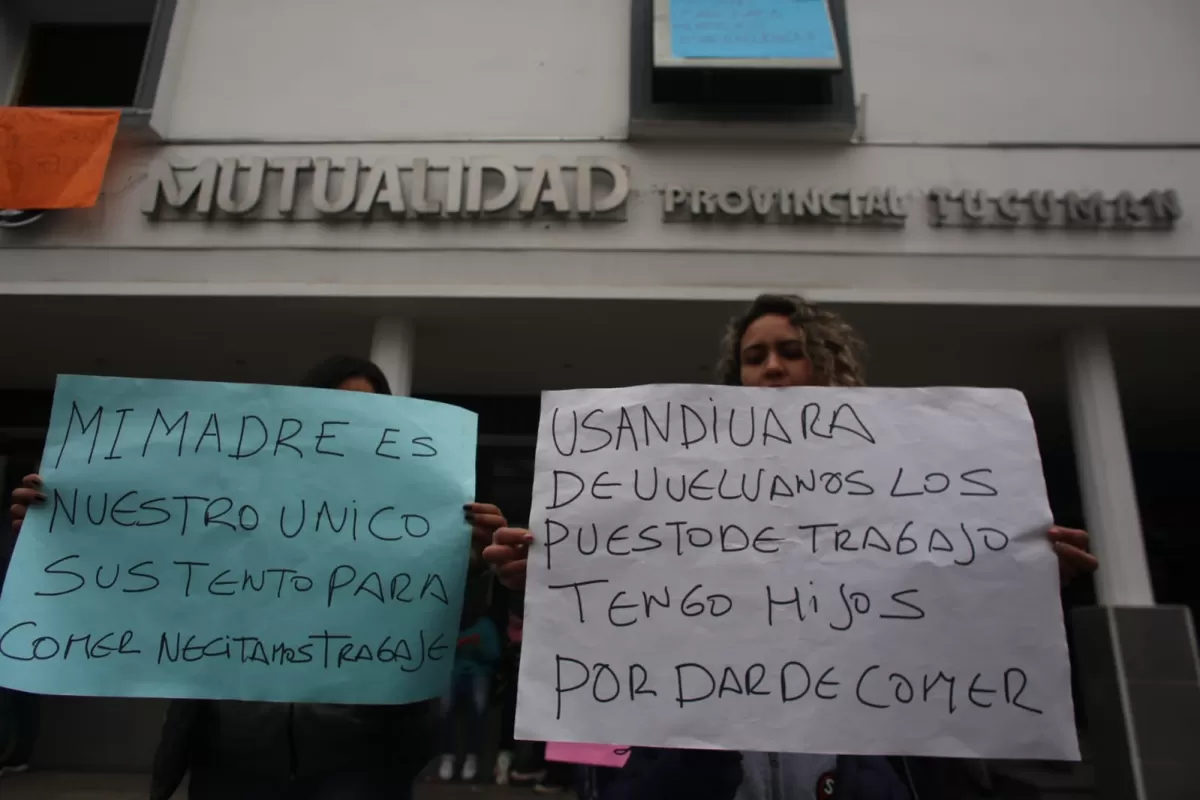 MUTUALIDAD PROVINCIAL TUCUMAN
MI MADRE ES
NUESTRO UNICO
SUSTENTO PARA
COMER NECITAMOS TRABAJE
USANDIUARA
DEUUELUANOS LOS
PUESTO DE TRABAJO
TENGO HIJOS
POR DAR DE COMER